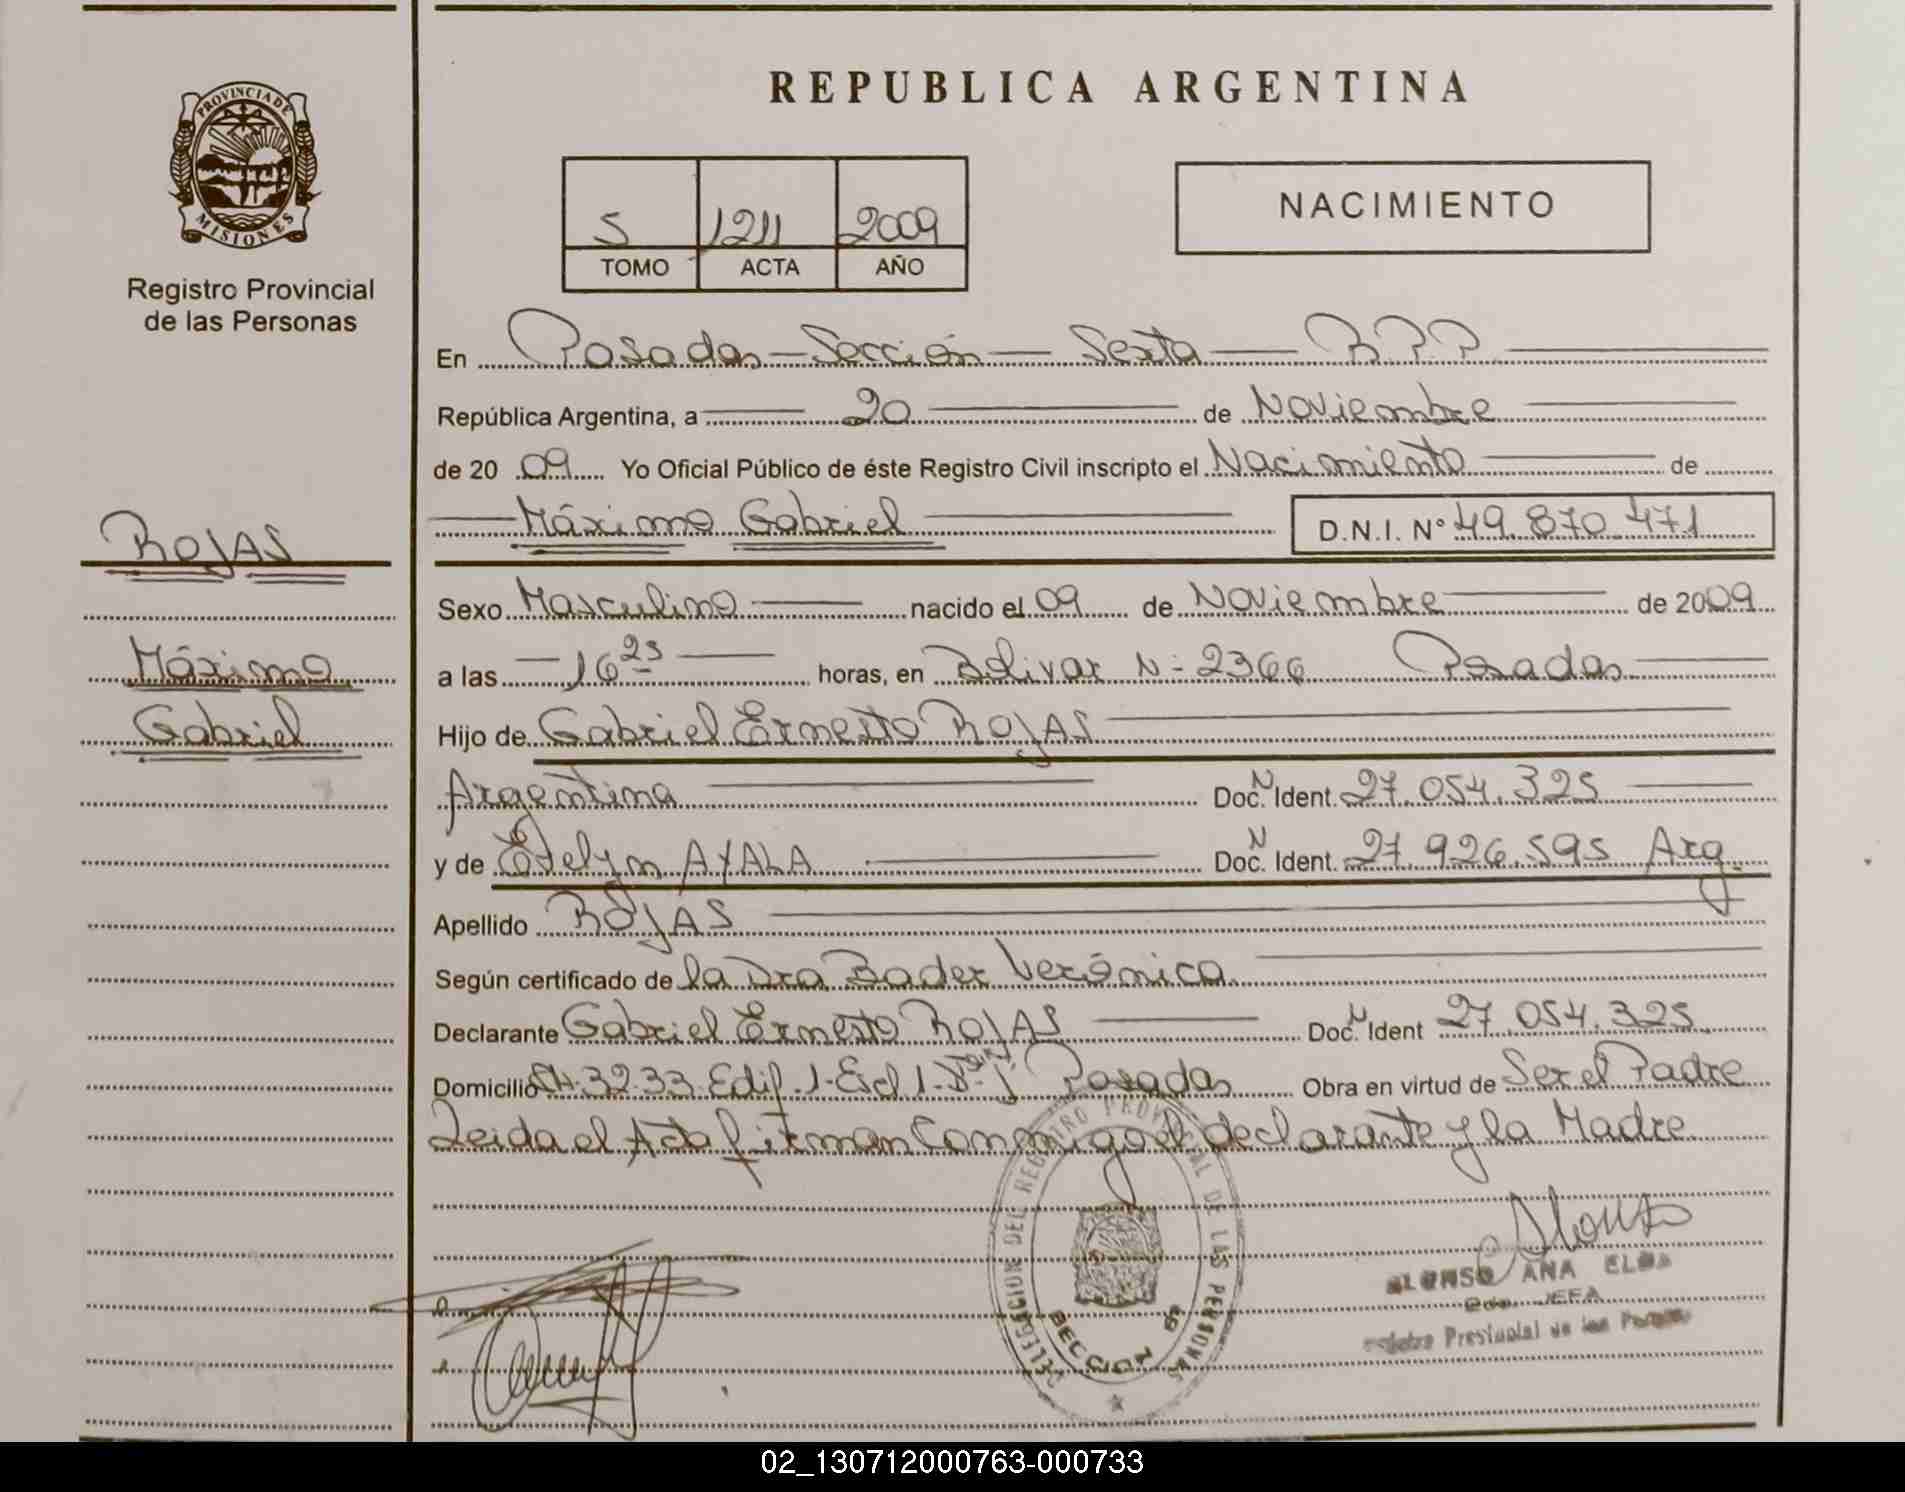 PROVINCIA DE
MISIONES
Registro Provincial
de las Personas
ROJAS
Máximo
Gabriel
REPUBLICA ARGENTINA
5 1211 2009
TOMO ACTA AÑO
NACIMIENTO
En Posadas - Sección - Sexta - R.P.P.
República Argentina, a 20 de Noviembre
de 2009 Yo Oficial Público de éste Registro Civil inscripto el Nacimiento de
Máximo Gabriel D.N.I. N° 49.870.471
Sexo Masculino nacido el 09 de Noviembre de 2009
a las 16 25 horas, en Bolivar N: 2366 Posadas
Hijo de Gabriel Ernesto ROJAS
Argentina Doc. N Ident. 27.054.325
y de AYALA Doc. N Ident. 27.926.595 Arg.
Apellido ROJAS
Según certificado de la Dra Bader Verónica
Declarante Gabriel Ernesto ROJAS Doc. N Ident 27.054.325
Domicilio CH. 32.33. Edif. 1- Esc 1- Posadas Obra en virtud de Ser el Padre
Leida el Acta firman Conmigo el declarante y la Madre
DELEGACION DEL REGISTRO PROVINCIAL DE LAS PERSONAS
SECCION 6a
Alonso
ALONSO ANA ELBA
JEFA
Provincial de las
02_130712000763-000733